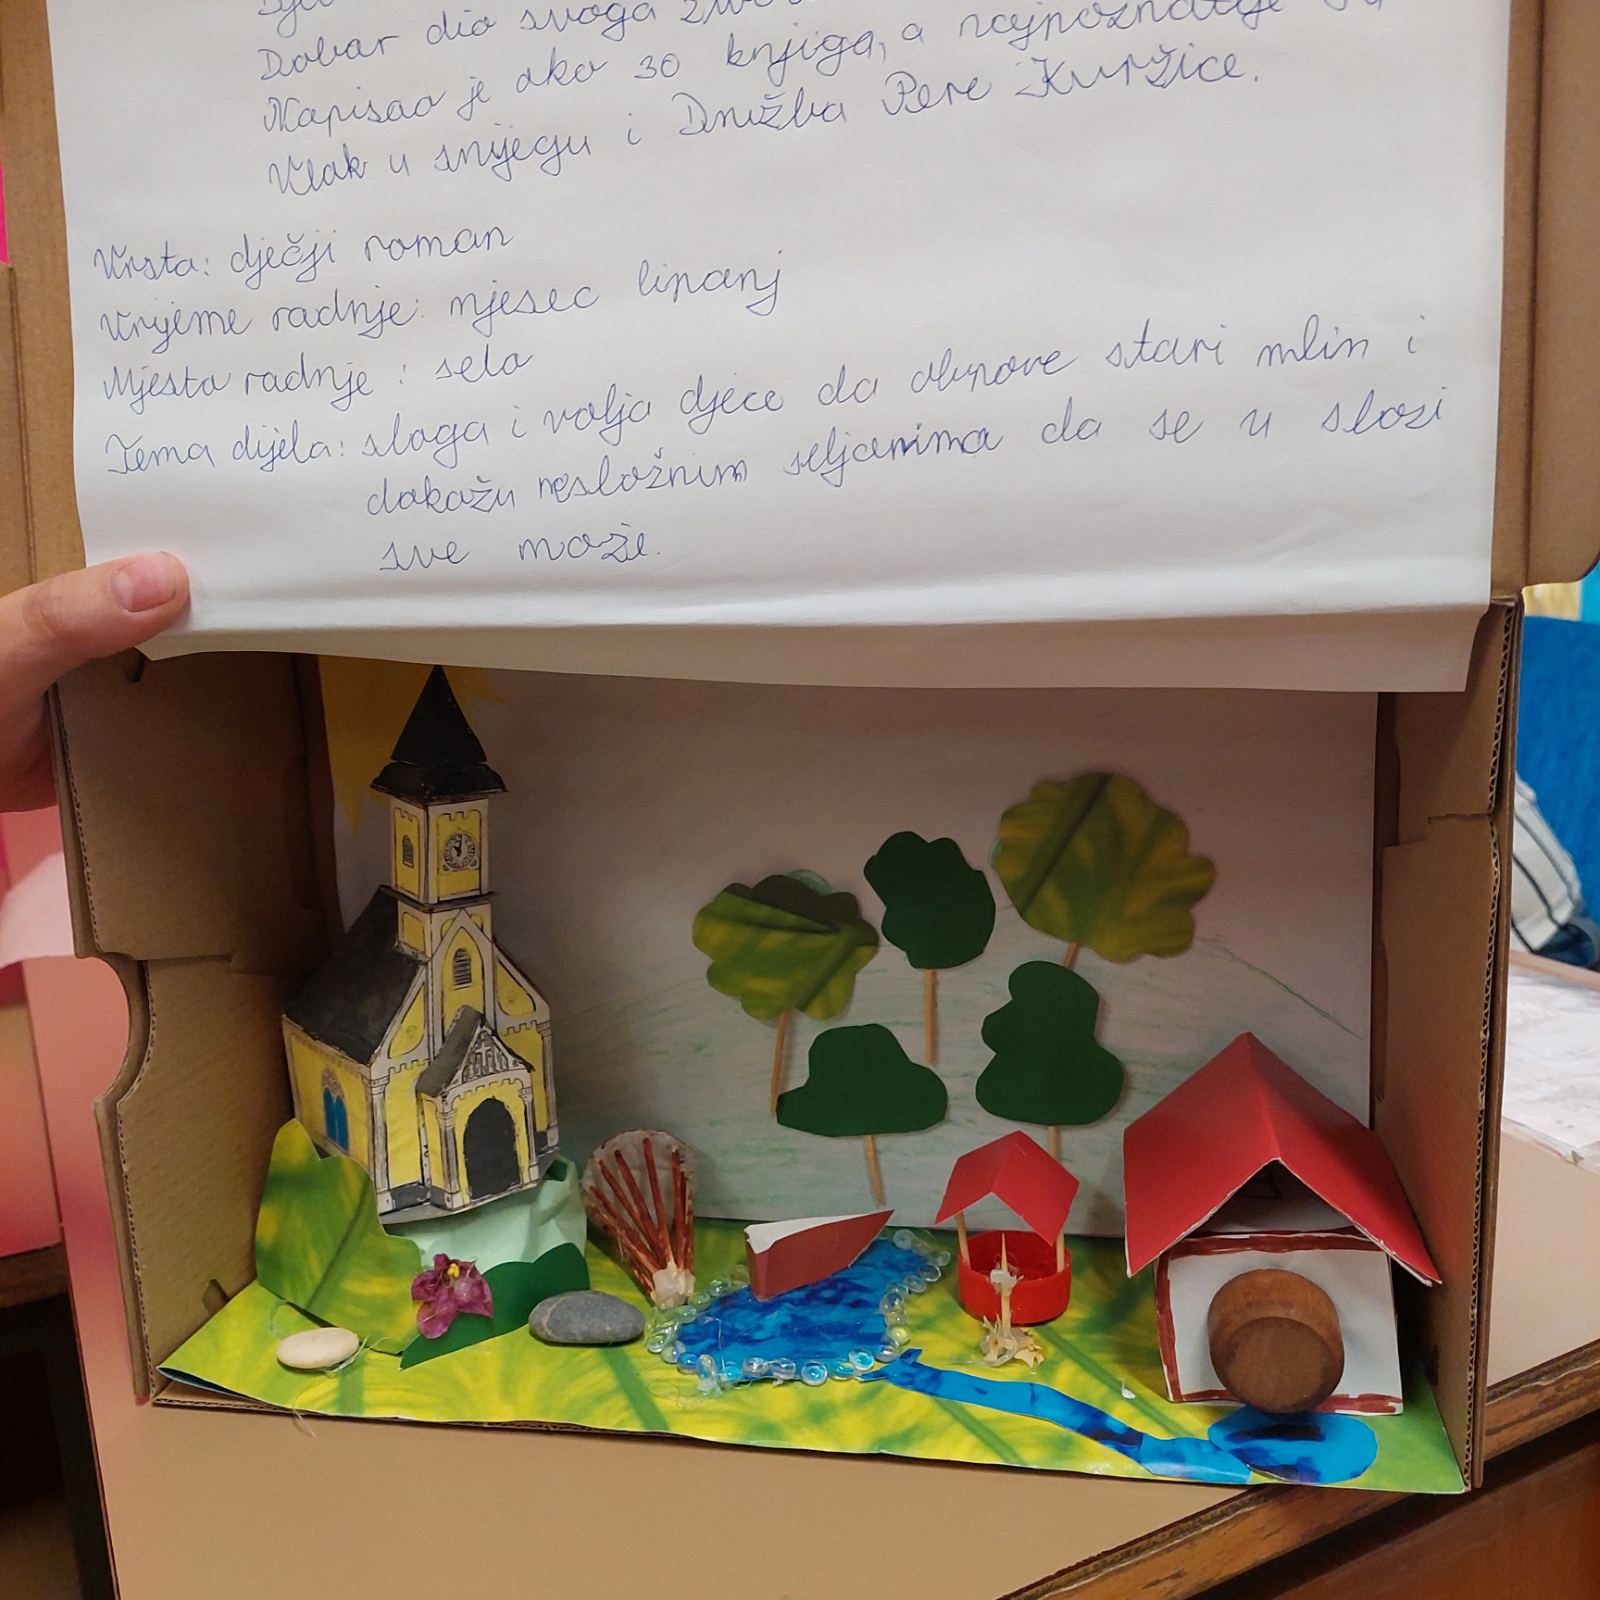 Dobar dio svoga
Napisao je oko 30 knjiga, a najpoznatije
Vlak u snijegu i Družba Pere Kvržice.
Vrsta: dječji roman
Vrijeme radnje: mjesec lipanj
Mjesto radnje: selo
Tema dijela: sloga i volja djece da obnove stari mlin i
dokažu nesložnim seljanima da se u slozi
sve može.